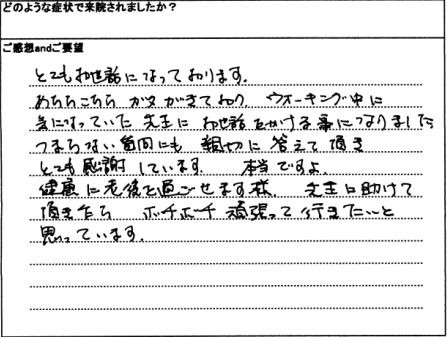 どのような症状で来院されましたか？
ご感想andご要望
とてもお世話になっております。
あちらこちら ガタがきており ウォーキング中に
気になっていた 先生に お世話をかける事になりました
つまらない質問にも 親切に 答えて 頂き
とても感謝しています。 本当ですよ
健康に老後を過ごせます様、 先生に助けて
頂きたら ボチボチ 頑張って行きたいと
思っています。